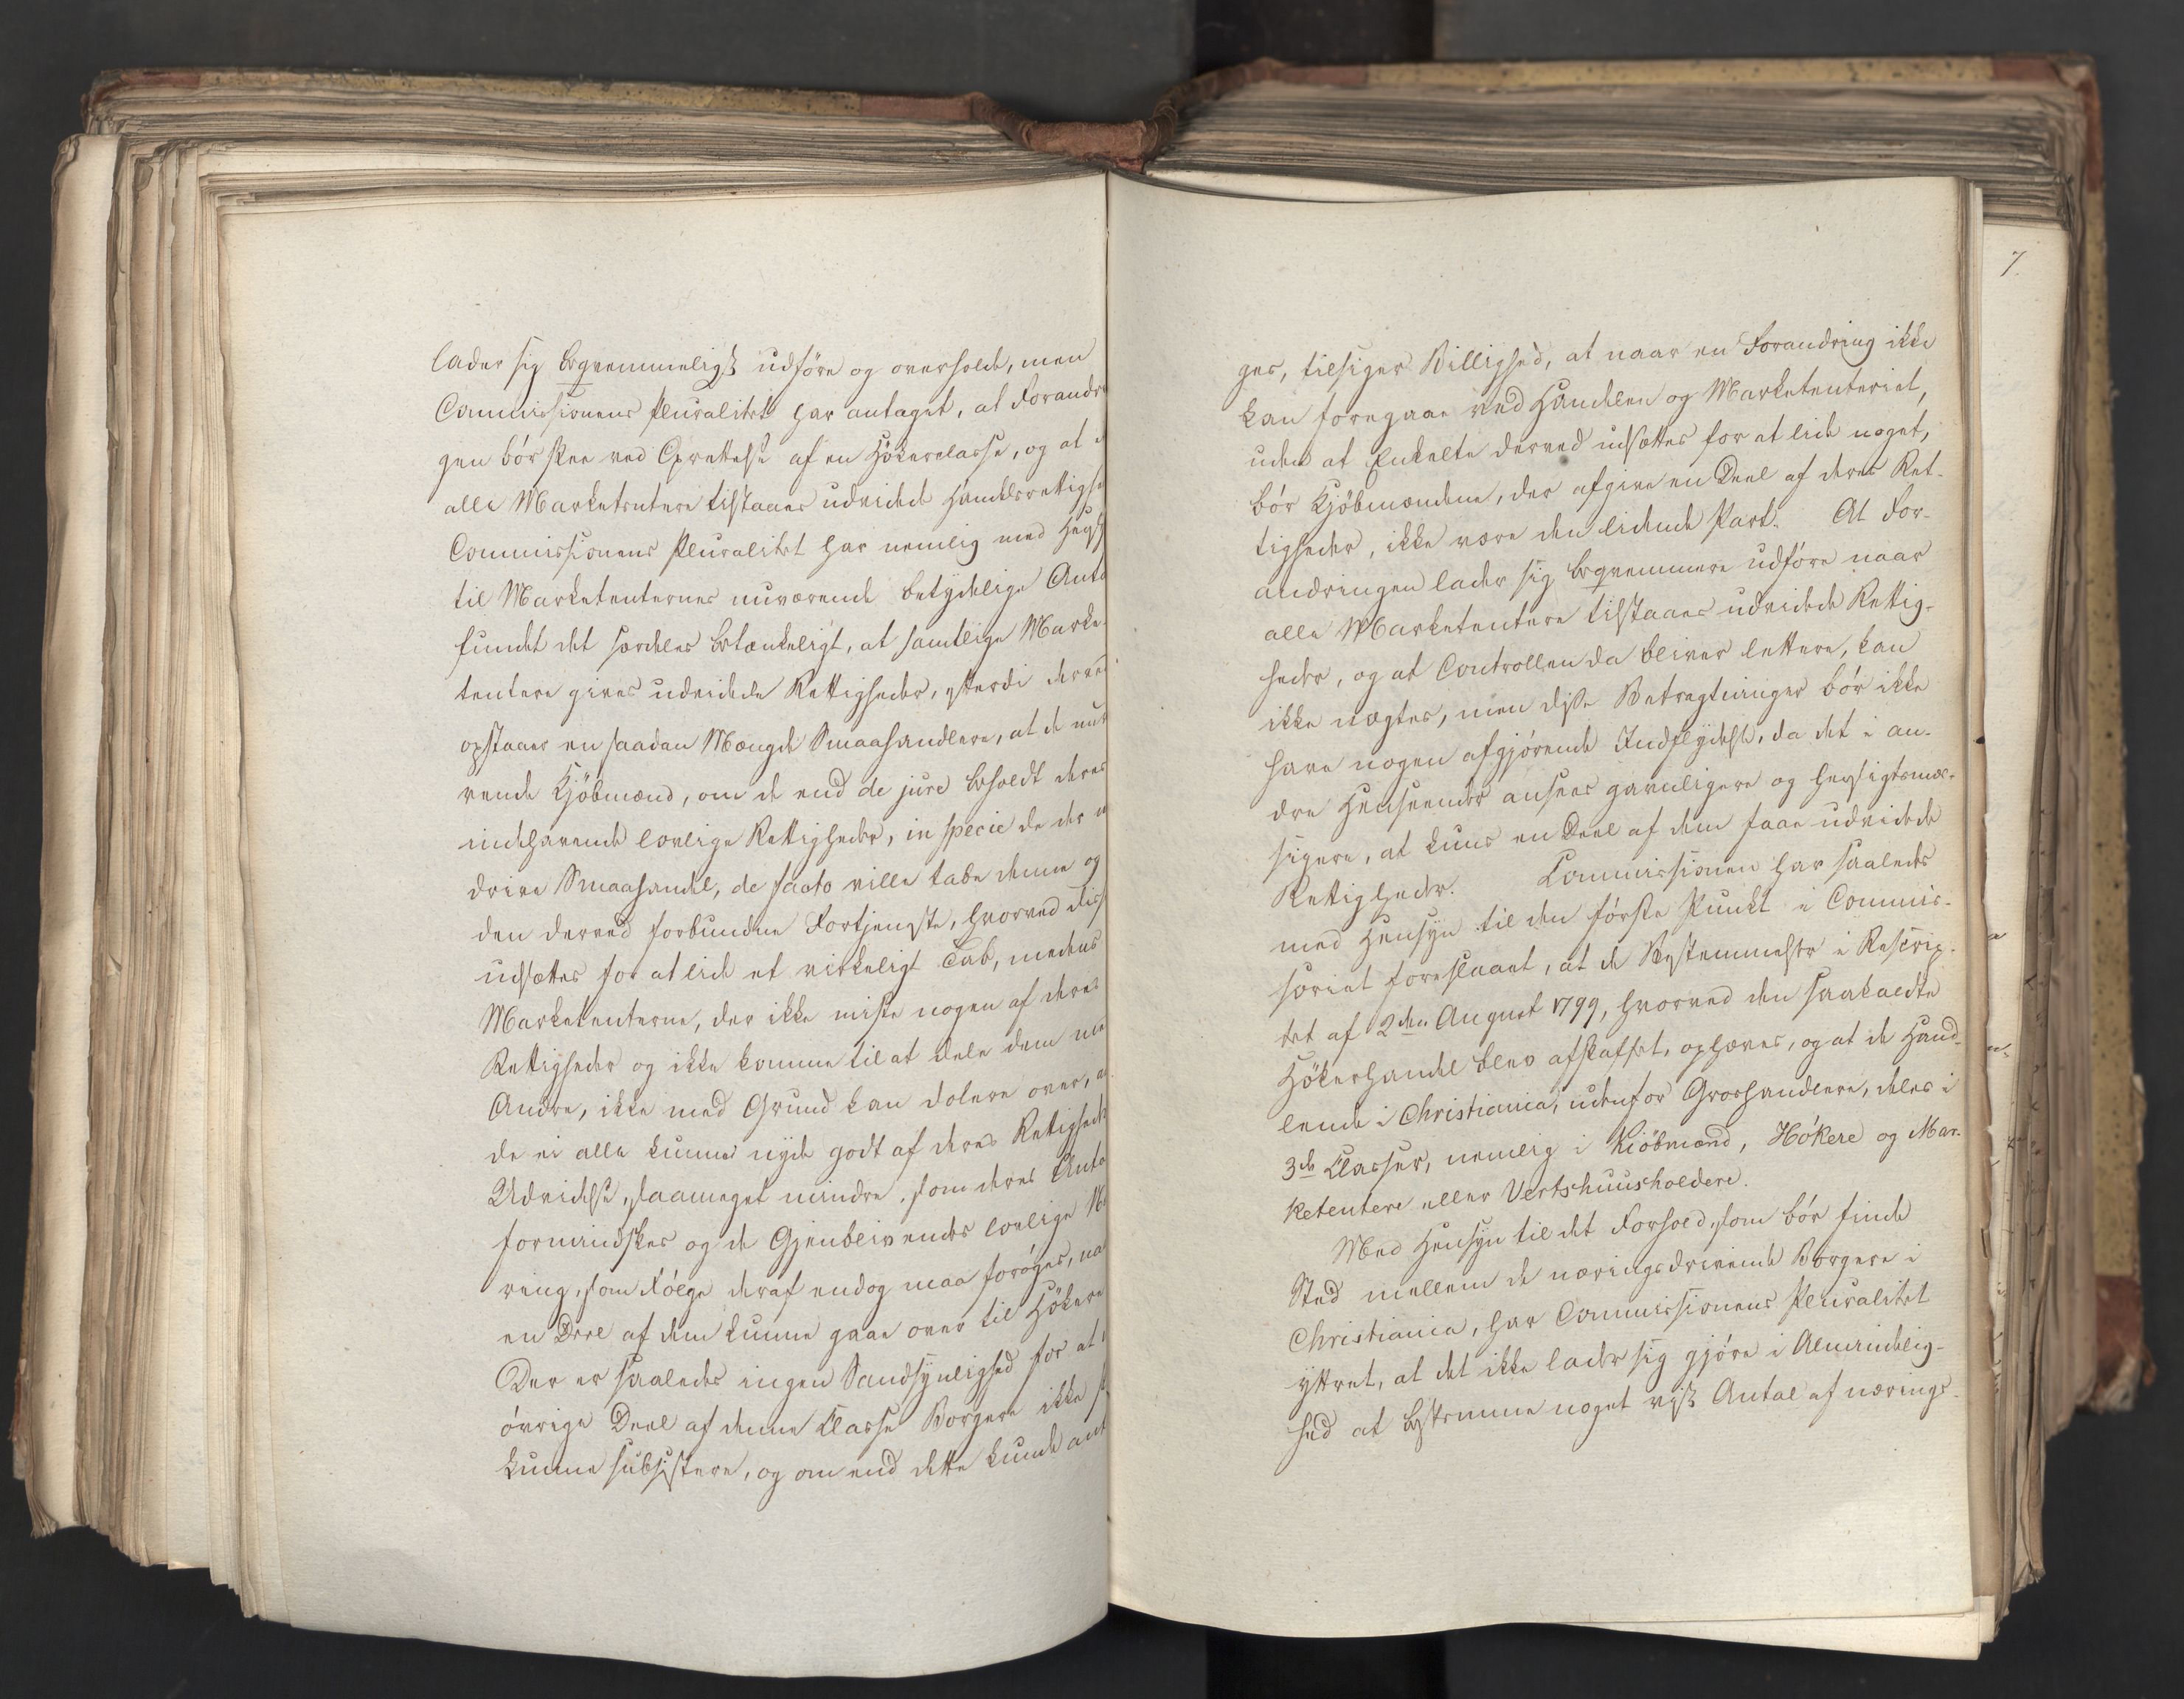 lader sig beqvemmeligst udföre og overholde, men
Commissionens Pluralitet har antaget, at Forandr
gen bör skee ved Oprettelse af en Hökerclasse, og at
alle Marketentere tilstaaes udvidede Handelsrettighe
Commissionens Pluralitet har nemlig med Hensy
til Marketenternes nuværende betydelige Anta
fundet det særdeles betænkeligt, at samtlige Marke-
tentere gives udvidede Rettigheder, efterdi derved
opstaaer en saadan Mængde Smaahandlere, at de nuv
rende Kjöbmænd, om de end de jure beholdt deres
indehavende lovlige Rettigheder, in specie de der
drive Smaahandel, de facto ville tabe denne og
den derved forbundne Fortjeneste, hvorved diss
udsættes for at lide et virkeligt Tab, medens
Marketenterne, der ikke miste nogen af deres
Rettigheder og ikke komme til at dele dem me
Andre, ikke med Grund kan dolere over, a
de ei alle kunne nyde godt af deres Rettighed
Udvidelse, saameget mindre, som deres Anta
formindskes og de Gjenblivendes lovlige Næ
ring, som Fölge deraf endog maa foröges, naa
en Deel af dem kunne gaae over til Hökere
Der er saaledes ingen Sandsynlighed for at
övrige Deel af denne Classe Borgere ikke
kunne subsistere, og om end dette kunde ant
7.
ges, tilsiger Billighed, at naar en Forandring ikke
kan foregaae ved Handelen og Marketenteriet,
uden at Enkelte derved udsættes for at lide noget,
bör Kjöbmændene, der afgive en Deel af deres Ret-
tigheder, ikke være den lidende Part. At For-
andringen lader sig beqvemmere udföre naar
alle Marketentere tilstaaes udvidede Rettig-
heder, og at Controllen da bliver lettere, kan
ikke nægtes, men disse Betragtninger bör ikke
have nogen afgjörende Indflydelse, da det i an-
dre Henseender ansees gavnligere og hensigtsmæs-
sigere, at kuns en Deel af dem faae udvidede
Rettigheder. Commissionen har saaledes
med Hensyn til den förste Punkt i Commis-
soriet foreslaaet, at de Bestemmelser i Rescrip-
tet af 2den August 1799, hvorved den saakaldte
Hökerhandel blev afskaffet, ophæves, og at de Hand-
lende i Christiania, udenfor Groshandlere, deles i
3de Classer, nemlig i Kiöbmænd, Hökere og Mar-
ketentere eller Vertshuusholdere.
Med Hensyn til det Forhold, som bör finde
Sted mellem de næringsdrivende Borgere i
Christiania, har Commissionens Pluralitet
yttret, at det ikke lader sig gjöre i Almindelig-
hed at bestemme noget vist Antal af nærings-